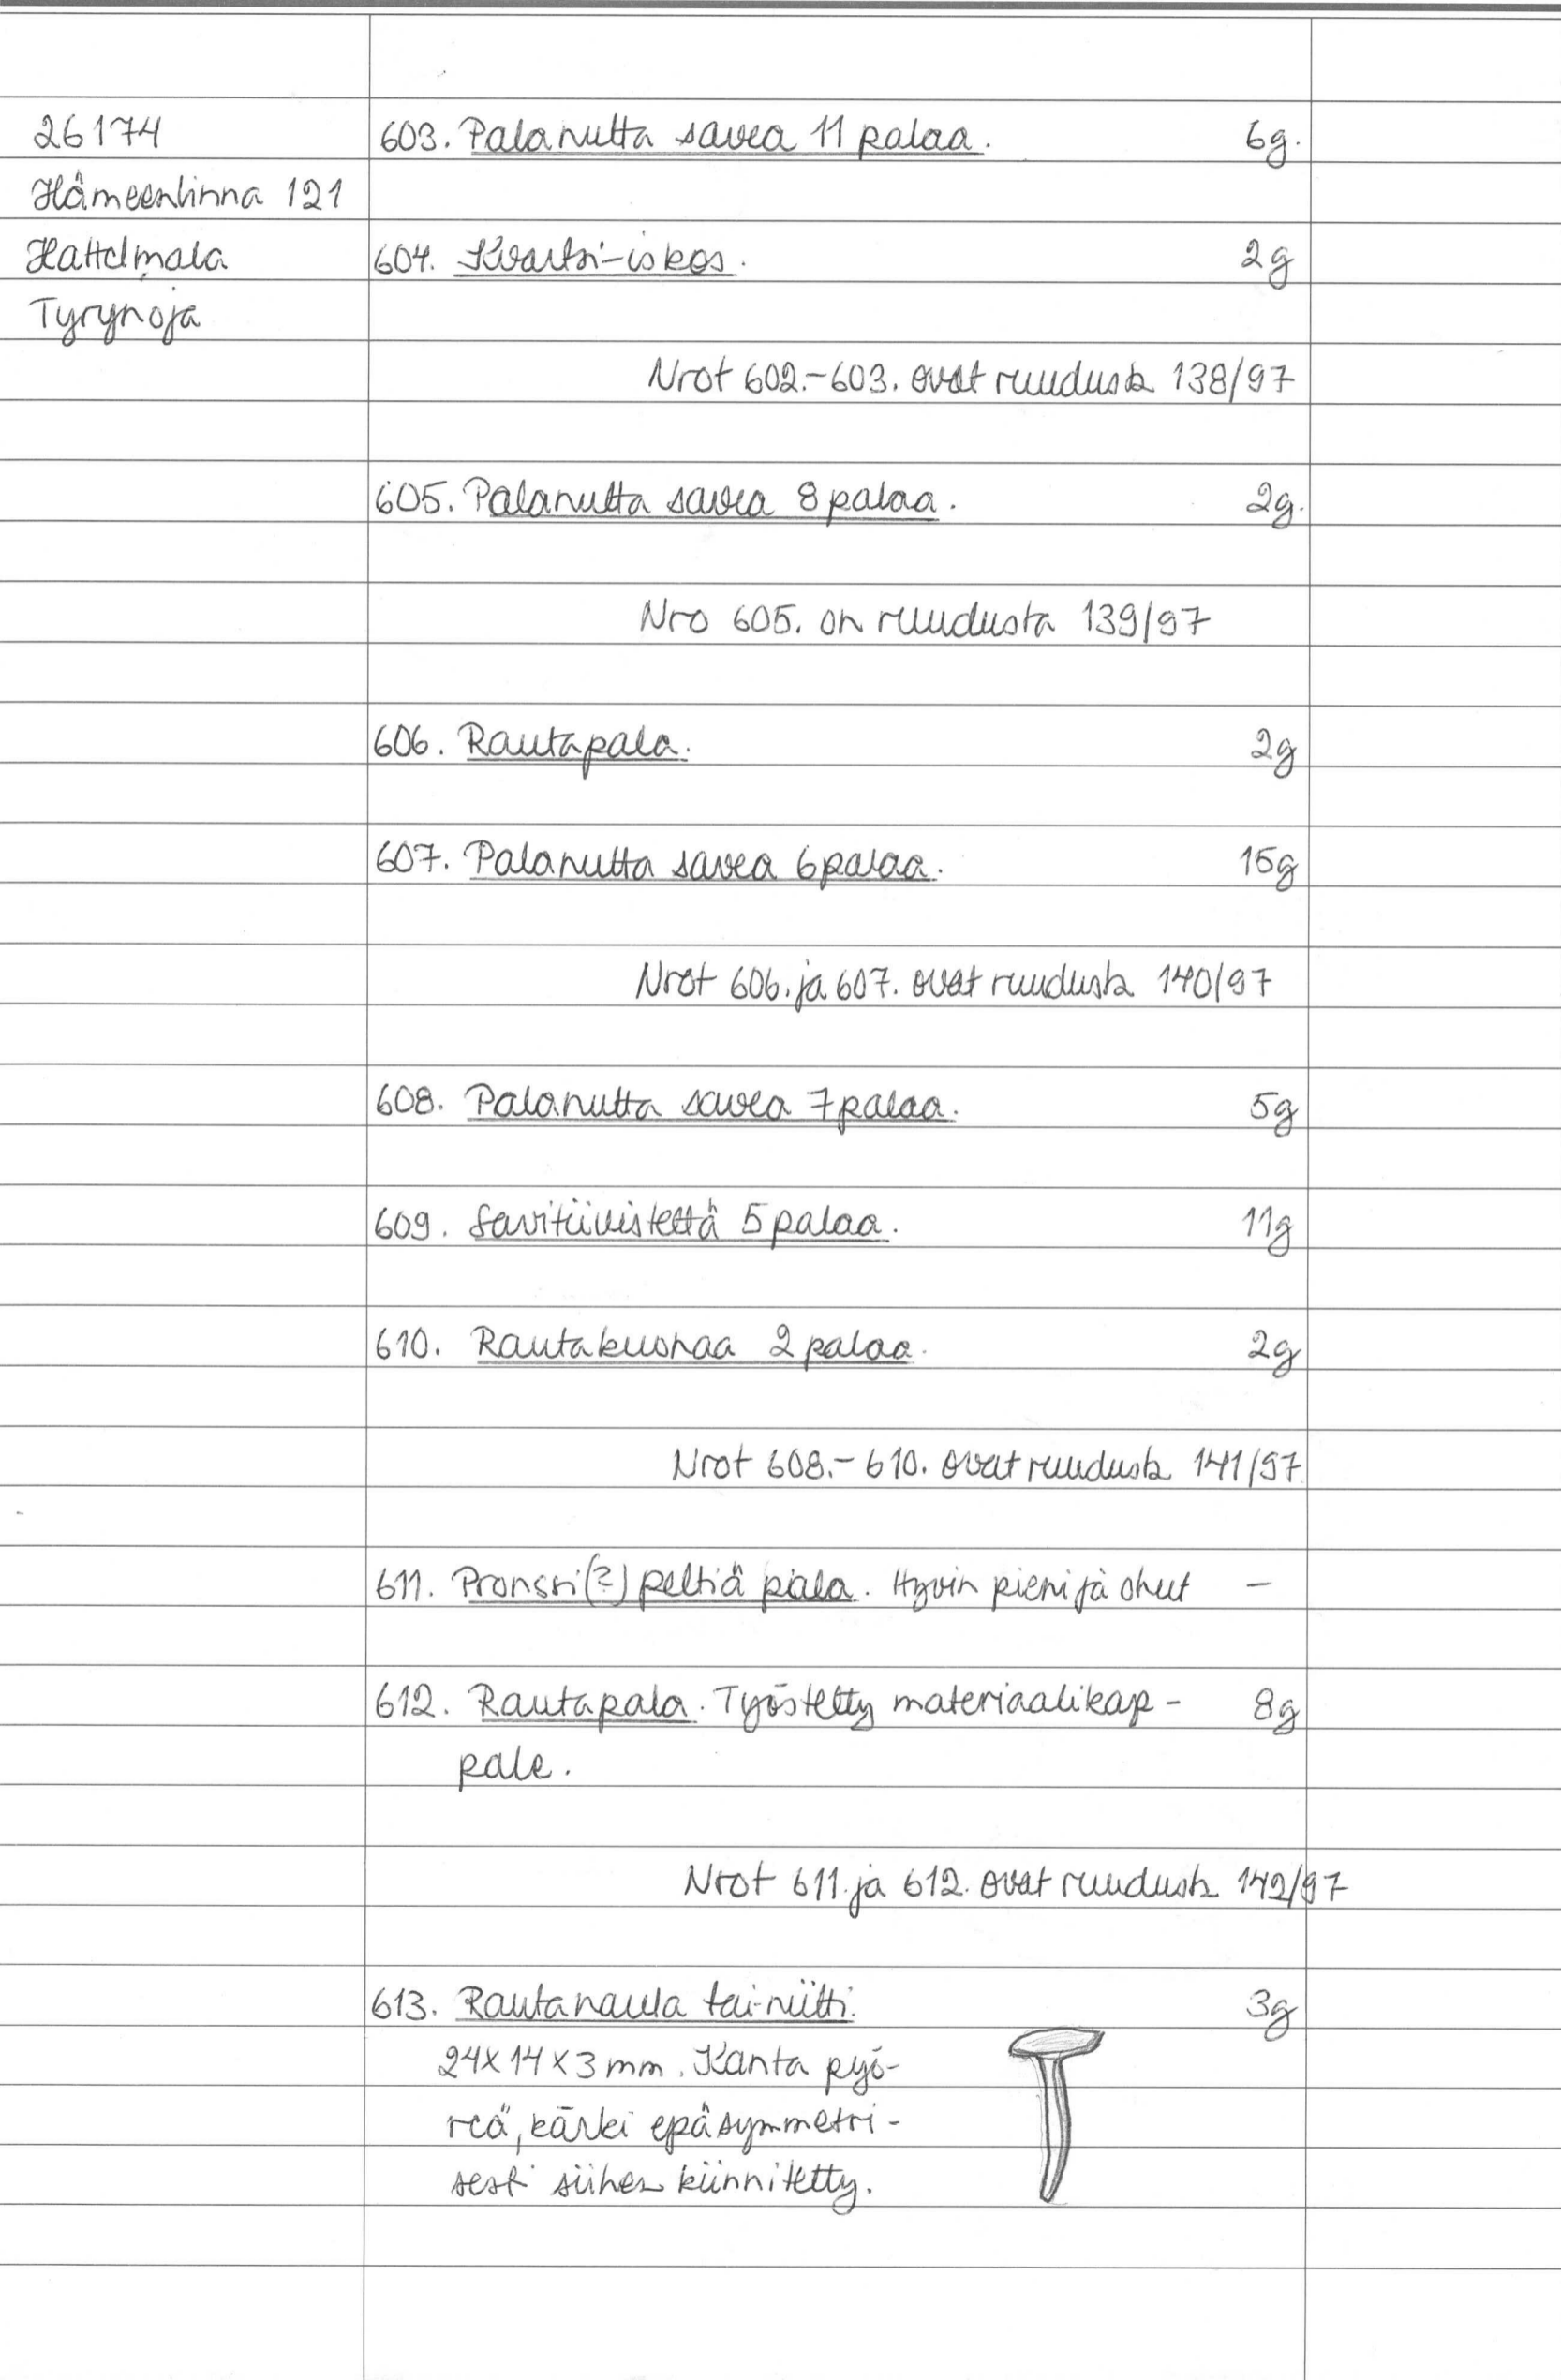 26174
Hämeenlinna 121
Hattelmala
Tyrynoja
603. Palanutta savea 11 palaa. 6g.
604. Kvartsi-iskos. 2g
Nrot 602.-603. ovat ruudusta 138/97
605. Palanutta savea 8 palaa. 2g.
Nro 605. on ruudusta 139/97
606. Rautapala. 2g
607. Palanutta savea 6 palaa. 15g
Nrot 606. ja 607. ovat ruudusta 140/97
608. Palanutta savea 7 palaa. 5g
609. Savitiivistettä 5 palaa. 11g
610. Rautakuonaa 2 palaa. 2g
Nrot 608.-610. ovat ruudusta 141/97
611. Pronssi(?) peltiä pala. Hyvin pieni ja ohut -
612. Rautapala. Työstetty materiaalikap- 8g
pale.
Nrot 611. ja 612. ovat ruudusta 142/97
613. Rautanaula tai-niitti. 3g
24x14x3 mm. Kanta pyö-
reä, kärki epäsymmetri-
sesti siihen kiinnitetty.